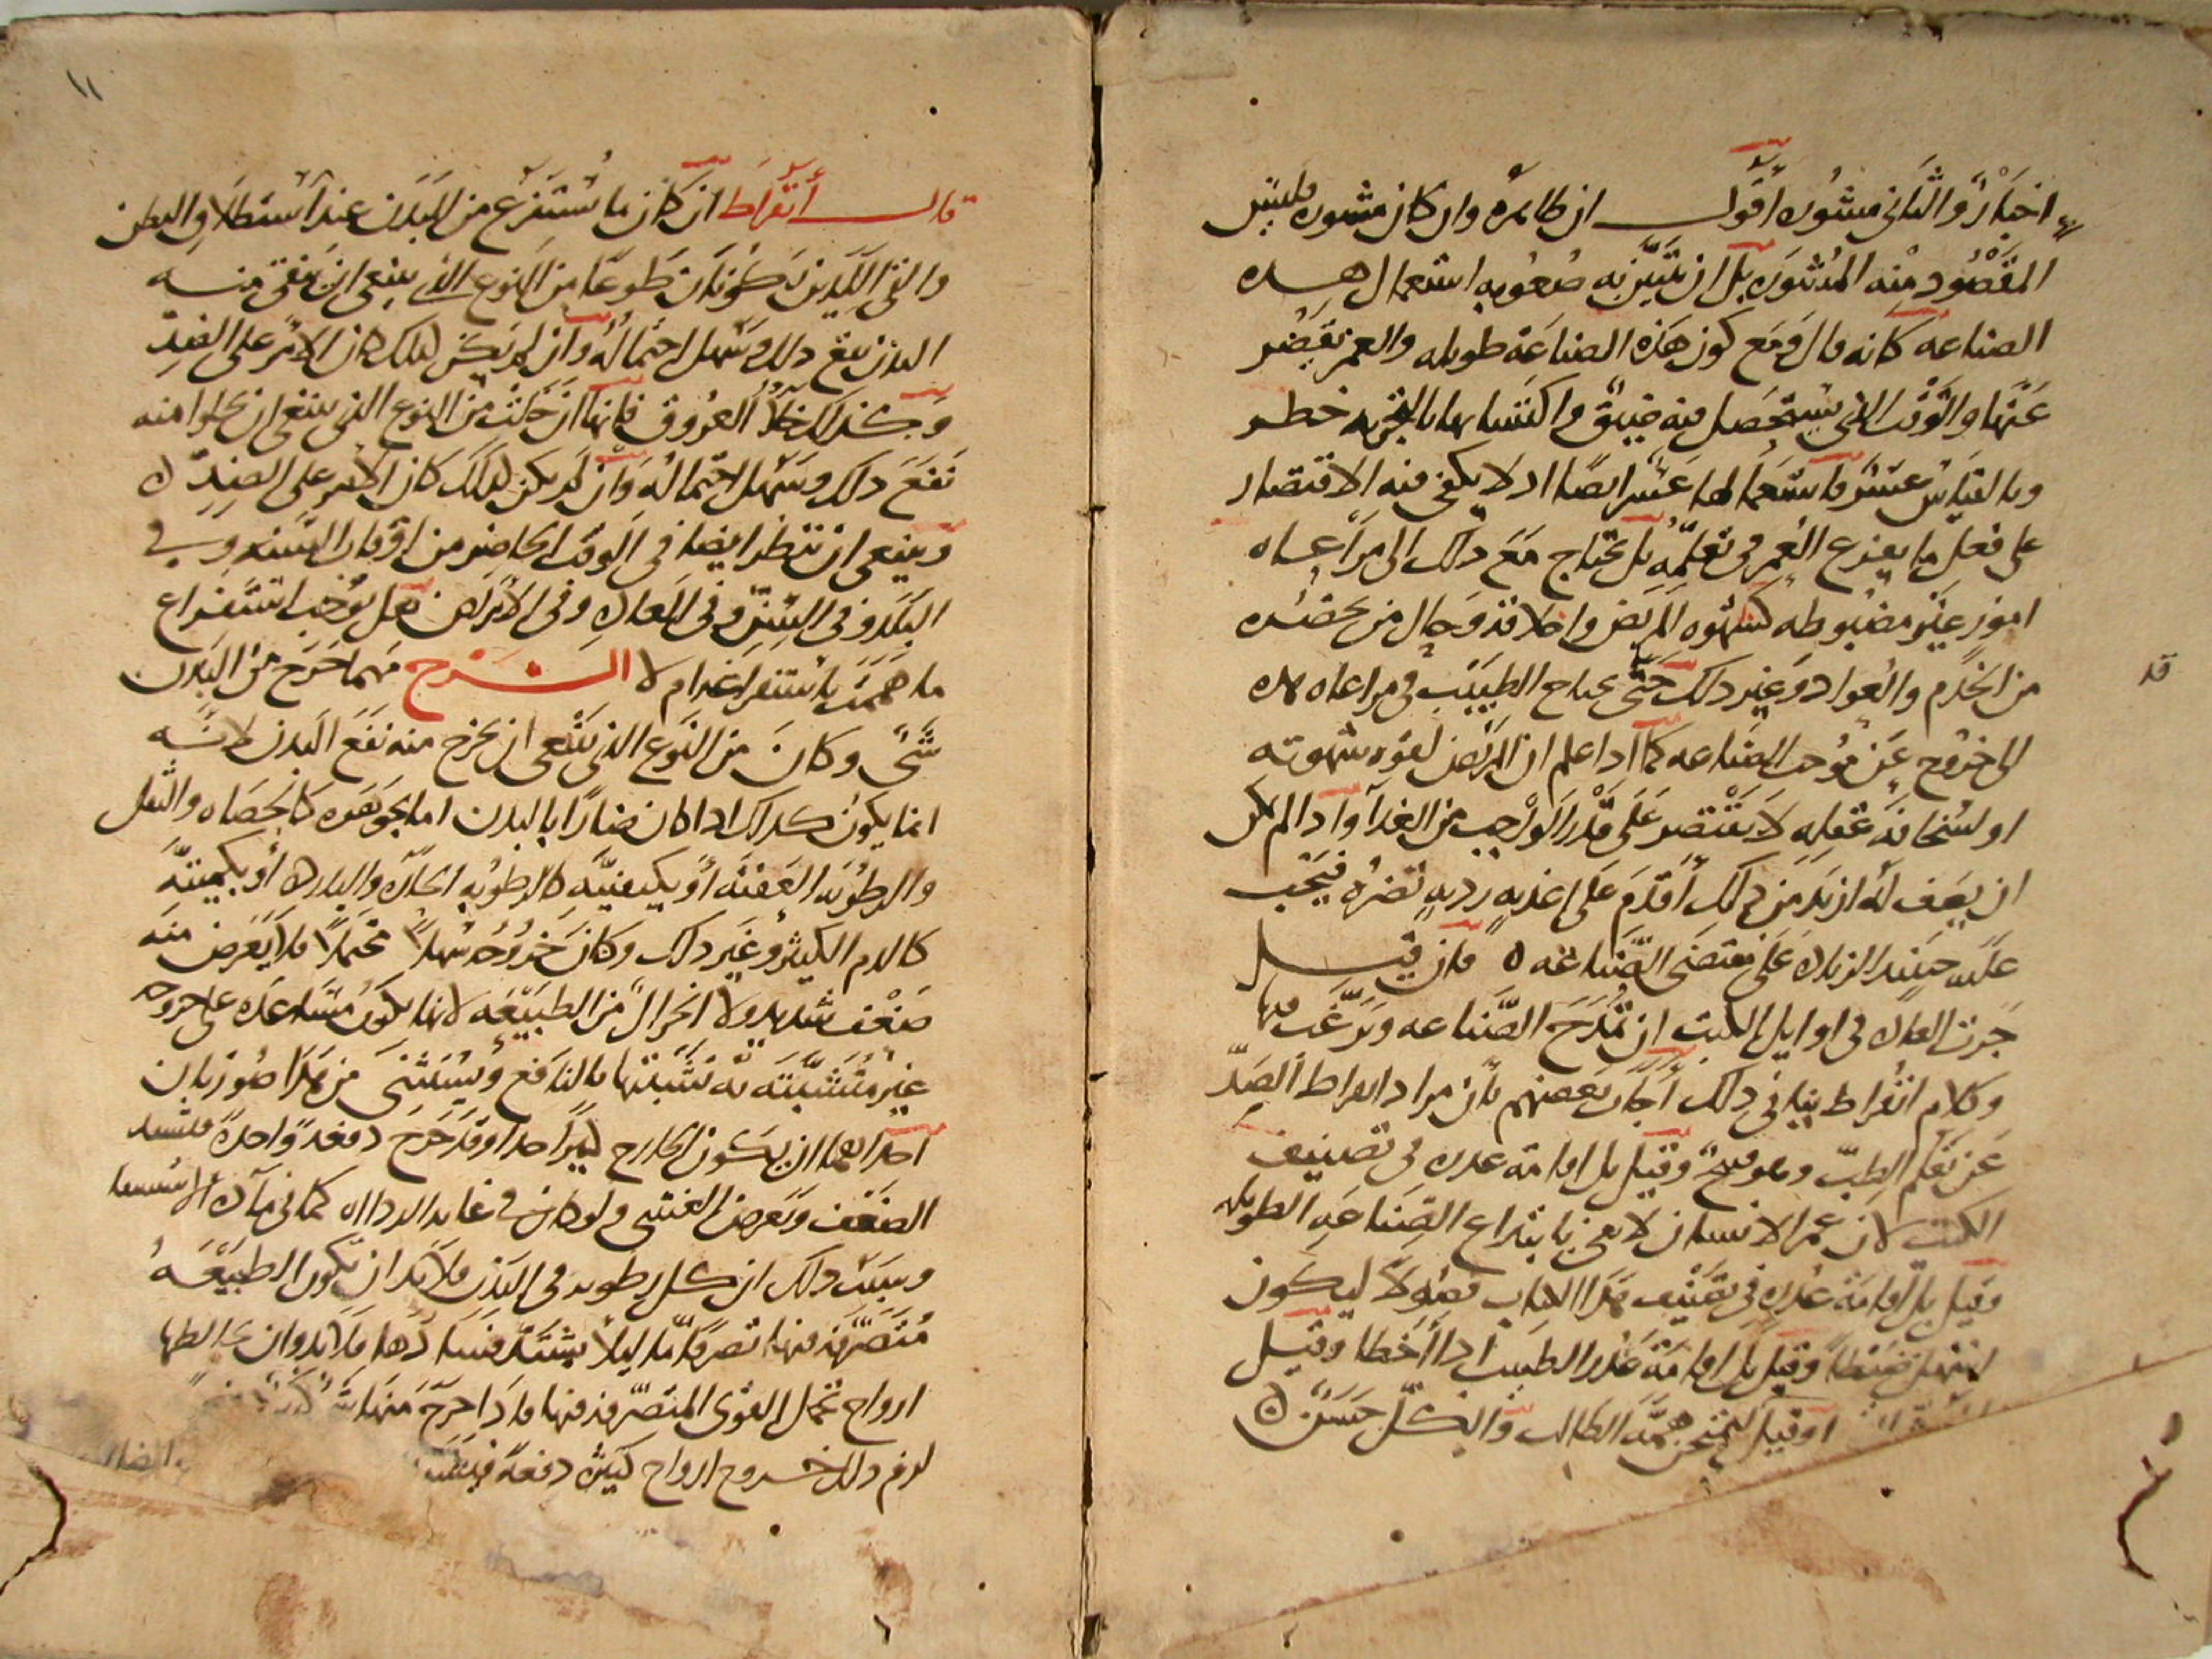 اخبار والثاني مشوره اقول ان ظاهره وان كان مشوره فليس
المقصود منه المشوره بل ان يتبين به صعوبه استعمال هذه
الصناعه كانه قال ومع كون هذه الصناعة طويله والعمر يقصر
عنها والوقت الذي يستحصل فيه ضيق واكتسابها بالتجربه خطر
وبالقياس عسر فاستعمالها عسر ايضا اذ لا يكفي فيه الاقتصار
على فعل ما يفرغ العمر في تعلمه بل يحتاج مع ذلك الى مراعاه
امور غير مضبوطه كشهوه المريض واخلاقه وحال من يحضره
من الخدم والعواد وغير ذلك حتى يحتاج الطبيب في مراعاه هذه
قد
الى خروج عن موجب الصناعه كما اذا علم ان المريض لقوه شهوته
او لسخافه عقله لا يقتصر على قدر الواجب من الغذا واذا لم يكن
ان يصف له ازيد من ذلك اقدم على اغذيه رديه تضره فيجب
عليه حينئذ الزياده على مقتضى الصناعه ه فان قيل
جرت العاده في اوايل الكتب ان تمدح الصناعه ويرغب فيها
وكلام ابقراط ينافي ذلك اجاب بعضهم بان مراد ابقراط الصد
عن تعلم الطب وهو قبيح وقيل بل اقامة عذره في تصنيف
الكتب لان عمر الانسان لا يفي بابتداع الصناعه الطويله
وقيل بل اقامة عذره في تصنيف هذا الكتاب فصولا ليكون
اسهل ضبطا وقيل بل اقامة عذر الطبيب اذا اخطا وقيل
اوقيل ليمتحن همة الطالب والكل حسن ه
١١
قال ابقراط ان كان ما يستفرغ من البدن عند استطلاق البطن
والقي اللذين يكونان طوعا من النوع الذي ينبغي ان ينقى منه
البدن نفع ذلك وسهل احتماله وان لم يكن كذلك كان الامر على الضد
وكذلك خلا العروق فانها ان خلت من النوع الذي ينبغي ان تخلوا منه
نفع ذلك وسهل احتماله وان لم يكن كذلك كان الامر على الضد ه
وينبغي ان تنظر ايضا في الوقت الحاضر من اوقات السنه وفي
البلد وفي السن وفي العاده وفي الامراض هل توجب استفراغ
ما هممت باستفراغه ام لا الشرح مهما خرج من البدن
شي وكان من النوع الذي ينبغي ان يخرج منه نفع البدن لانه
انما يكون كذلك اذا كان ضارا بالبدن اما بجوهره كالحصاه والثفل
والرطوبه العفنه او بكيفيته كالرطوبه الحاره والبارده او بكميته
كالدم الكثير وغير ذلك وكان خروجه سهلا محتملا فلا يعرض منه
ضعف شديد ولا انخزال من الطبيعه لانها تكون مساعده على خروجه
غير متشبثه به تشبثها بالنافع ويستثنى من هذا صورتان
احداهما ان يكون الخارج كثيرا جدا وقد خرج دفعة واحدة فيشتد
الضعف ويعرض الغشي ولو كان في غايه الرداه كما في ماده الاستسقا
وسبب ذلك ان كل رطوبه في البدن فلا بد ان تكون الطبيعه
متصرفه فيها تصرفا ما ليلا يشتد فسادها فلا بد وان يخالطها
ارواح تحمل القوى المتصرفه فيها فاذا خرج منها شي كثير دفعه
لزم ذلك خروج ارواح كثيره دفعه فيضعف